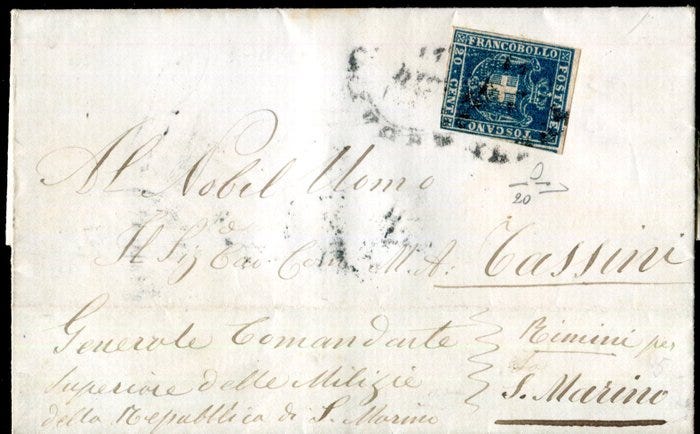 FRANCOBOLLO
POSTALE
20 CENT
TOSCANO
Al Nobil Uomo
20
Il Sig Cav Com M. A. Tassini
Generale Comandante
Superiore delle Milizie
della Repubblica di S. Marino
Rimini per
S. Marino